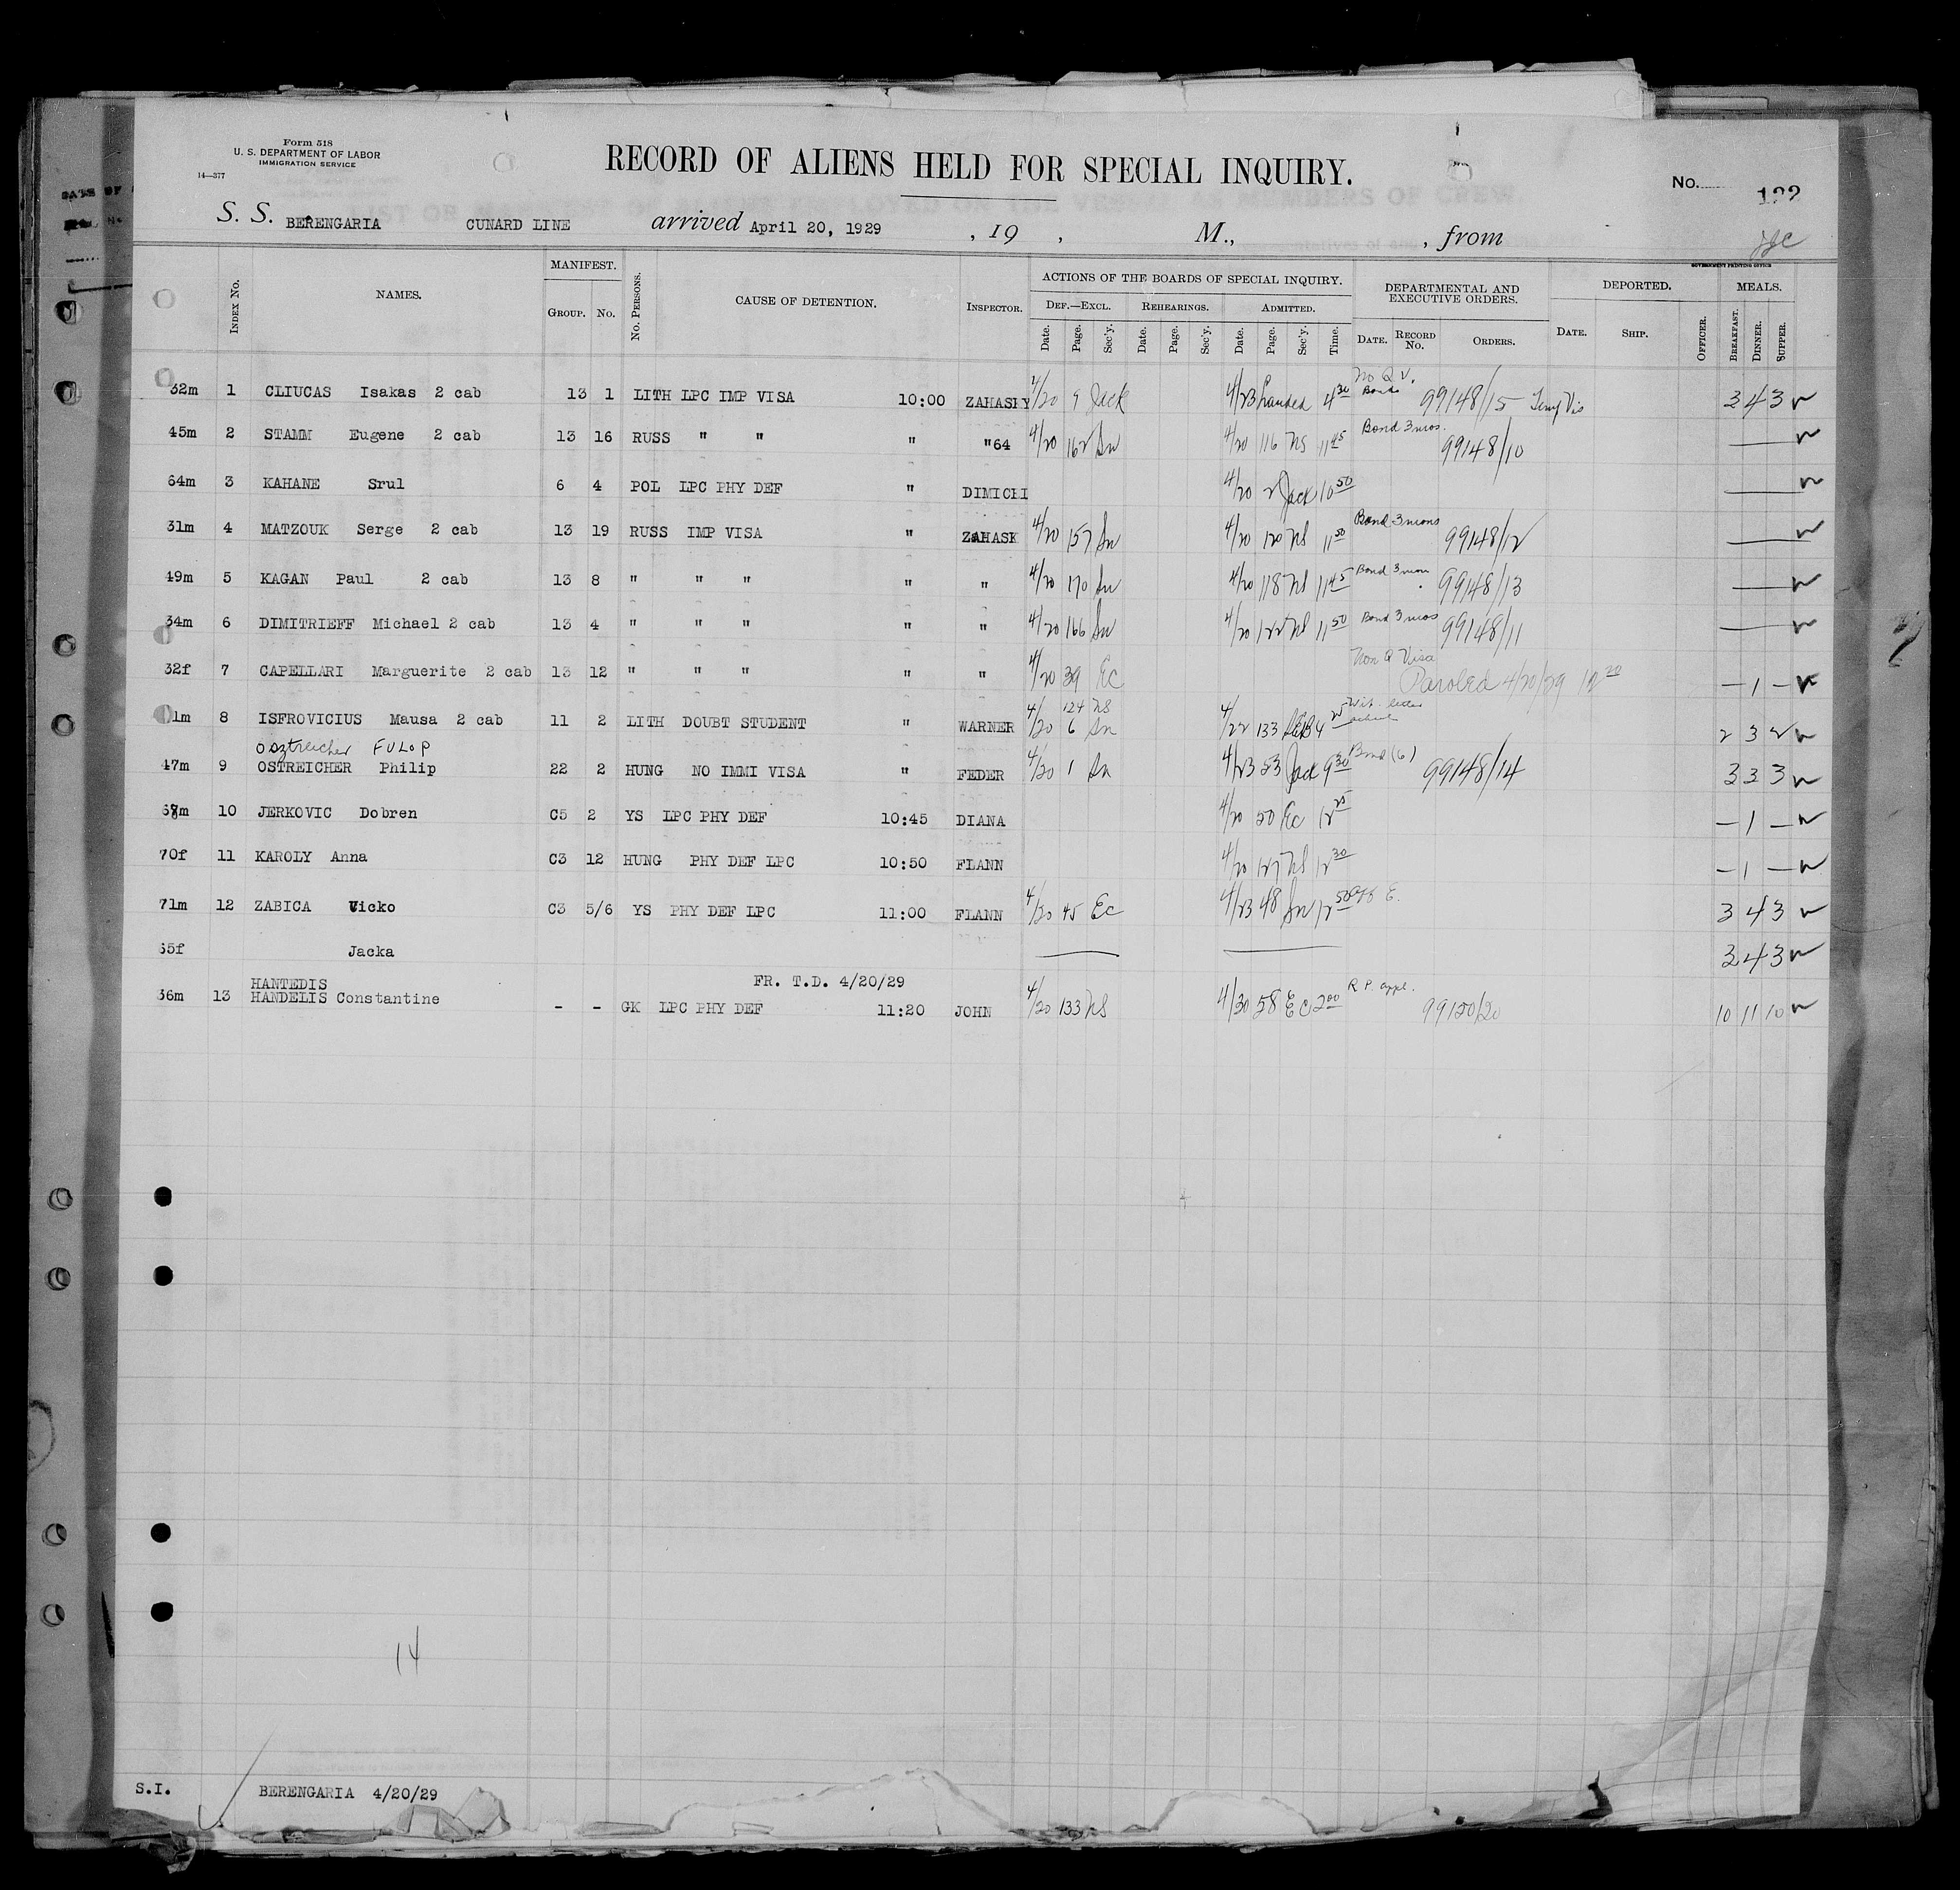 Form 518
U. S. DEPARTMENT OF LABOR
IMMIGRATION SERVICE
14—377
RECORD OF ALIENS HELD FOR SPECIAL INQUIRY.
No.
S. S. BERENGARIA CUNARD LINE arrived April 20, 1929 , 19 , M., , from
GOVERNMENT PRINTING OFFICE
Index No. NAMES. MANIFEST. Group. No. No. Persons. CAUSE OF DETENTION. Inspector. ACTIONS OF THE BOARDS OF SPECIAL INQUIRY. Def.—Excl. Rehearings. Admitted. DEPARTMENTAL AND EXECUTIVE ORDERS. DEPORTED. MEALS.
Date. Page. Sec'y. Date. Page. Sec'y. Date. Page. Sec'y. Time. Date. Record No. Orders. Date. Ship. Officer. Breakfast. Dinner. Supper.
32m 1 CLIUCAS Isakas 2 cab 13 1 LITH LPC IMP VISA 10:00 ZAHASKY 4/20 9 Jack 4/23 Landed 4 30 No Q V. Bond 99148/15 Temp Vis 3 4 3
45m 2 STAMM Eugene 2 cab 13 16 RUSS " " " "64 4/20 162 Sn 4/20 116 NS 11 45 Bond 3 mos. 99148/10
64m 3 KAHANE Srul 6 4 POL LPC PHY DEF " DIMICHI 4/20 2 Jack 10 50
31m 4 MATZOUK Serge 2 cab 13 19 RUSS IMP VISA " ZAHASK 4/20 157 Sn 4/20 120 NS 11 50 Bond 3 mons 99148/12
49m 5 KAGAN Paul 2 cab 13 8 " " " " " 4/20 170 Sn 4/20 118 NS 11 45 Bond 3 mon 99148/13
34m 6 DIMITRIEFF Michael 2 cab 13 4 " " " " " 4/20 166 Sn 4/20 122 NS 11 50 Bond 3 mos 99148/11
32f 7 CAPELLARI Marguerite 2 cab 13 12 " " " " " 4/20 39 Ec Non Q Visa Paroled 4/20/29 12 20 — 1 —
1m 8 ISFROVICIUS Mausa 2 cab 11 2 LITH DOUBT STUDENT " WARNER 4/20 124 NS 6 Sn 4/22 133 4 2 3 2
Osztreicher FULOP
47m 9 OSTREICHER Philip 22 2 HUNG NO IMMI VISA " FEDER 4/20 1 Sn 4/23 53 Jack 9 30 Bond (6) 99148/14 3 3 3
68m 10 JERKOVIC Dobren C5 2 YS LPC PHY DEF 10:45 DIANA 4/20 50 Ec 12 25 — 1 —
70f 11 KAROLY Anna C3 12 HUNG PHY DEF LPC 10:50 FLANN 4/20 127 NS 12 30 — 1 —
71m 12 ZABICA Vicko C3 5/6 YS PHY DEF LPC 11:00 FLANN 4/20 45 Ec 4/23 48 Sn 12 50 3 4 3
65f Jacka 3 4 3
HANTEDIS FR. T.D. 4/20/29
36m 13 HANDELIS Constantine - - GK LPC PHY DEF 11:20 JOHN 4/20 133 NS 4/30 58 Ec 2 00 R P. appl. 99120/20 10 11 10
14
S.I. BERENGARIA 4/20/29